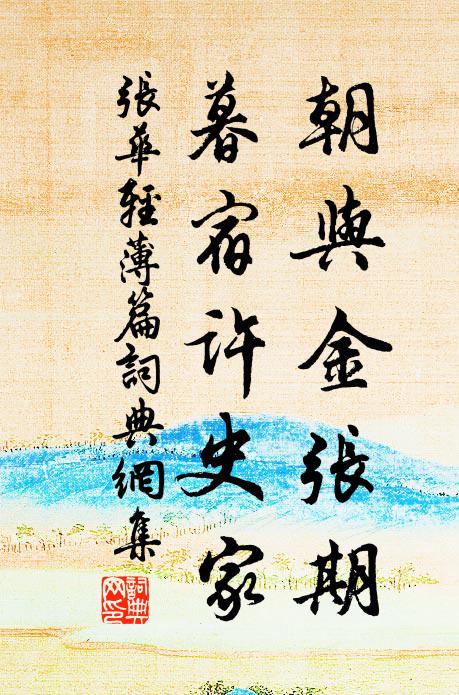 朝與金張期
暮宿許史家
張華輕薄篇詞典網集